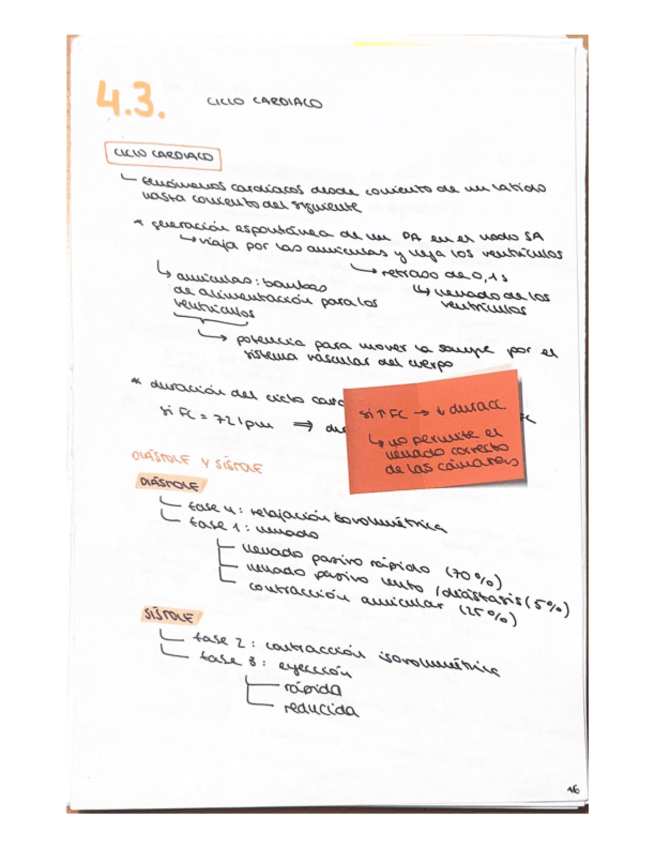 4.3. CICLO CARDIACO
CICLO CARDIACO
fenómenos cardíacos desde comienzo de un latido
hasta comienzo del siguiente
* generación espontánea de un PA en el nodo SA
viaja por las aurículas y llega los ventrículos
retraso de 0,1 s
llenado de los
ventrículos
aurículas: bombas
de alimentación para los
ventrículos
potencia para mover la sangre por el
sistema vascular del cuerpo
* duración del ciclo card
si FC = 72 lpm ⇒
si ↑ FC → ↓ duracc.
no permite el
llenado correcto
de las cámaras
DIÁSTOLE Y SÍSTOLE
DIÁSTOLE
fase 4: relajación isovolumétrica
fase 1: llenado
llenado pasivo rápido (70%)
llenado pasivo lento / diástasis (5%)
contracción auricular (25%)
SÍSTOLE
fase 2: contracción isovolumétrica
fase 3: eyección
rápida
reducida
16